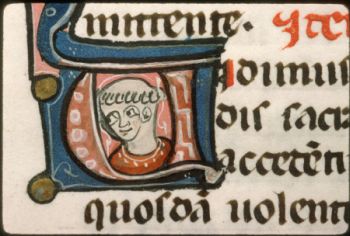 mittente. Ite
Vidimus
dis sacr
accetēn
quosdā uolent